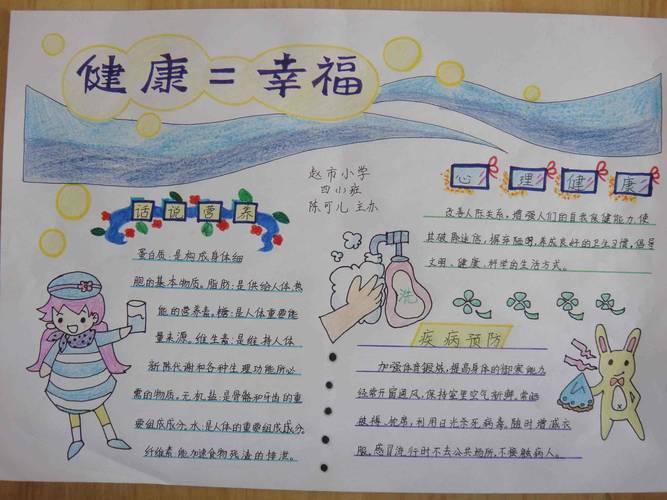 健康=幸福
赵市小学
四(1)班
陈可儿 主办
话说营养
蛋白质:是构成身体细
胞的基本物质。脂肪:是供给人体热
能的营养素。糖:是人体重要能
量来源。维生素:是维持人体
新陈代谢和各种生理功能所必
需的物质。无机盐:是骨骼和牙齿的重
要组成成分。水:是人体的重要组成成分。
纤维素:能加速食物残渣的排泄。
心理健康
改善人际关系,增强人们的自我保健能力,使
其破除迷信,摒弃陋习,养成良好的卫生习惯,倡导
文明、健康、科学的生活方式。
洗
疾病预防
加强体育锻炼,提高身体的御寒能力
经常开窗通风,保持室里空气新鲜,常晒
被褥、地席,利用日光杀死病毒。随时增减衣
服。感冒流行时不去公共场所,不接触病人。